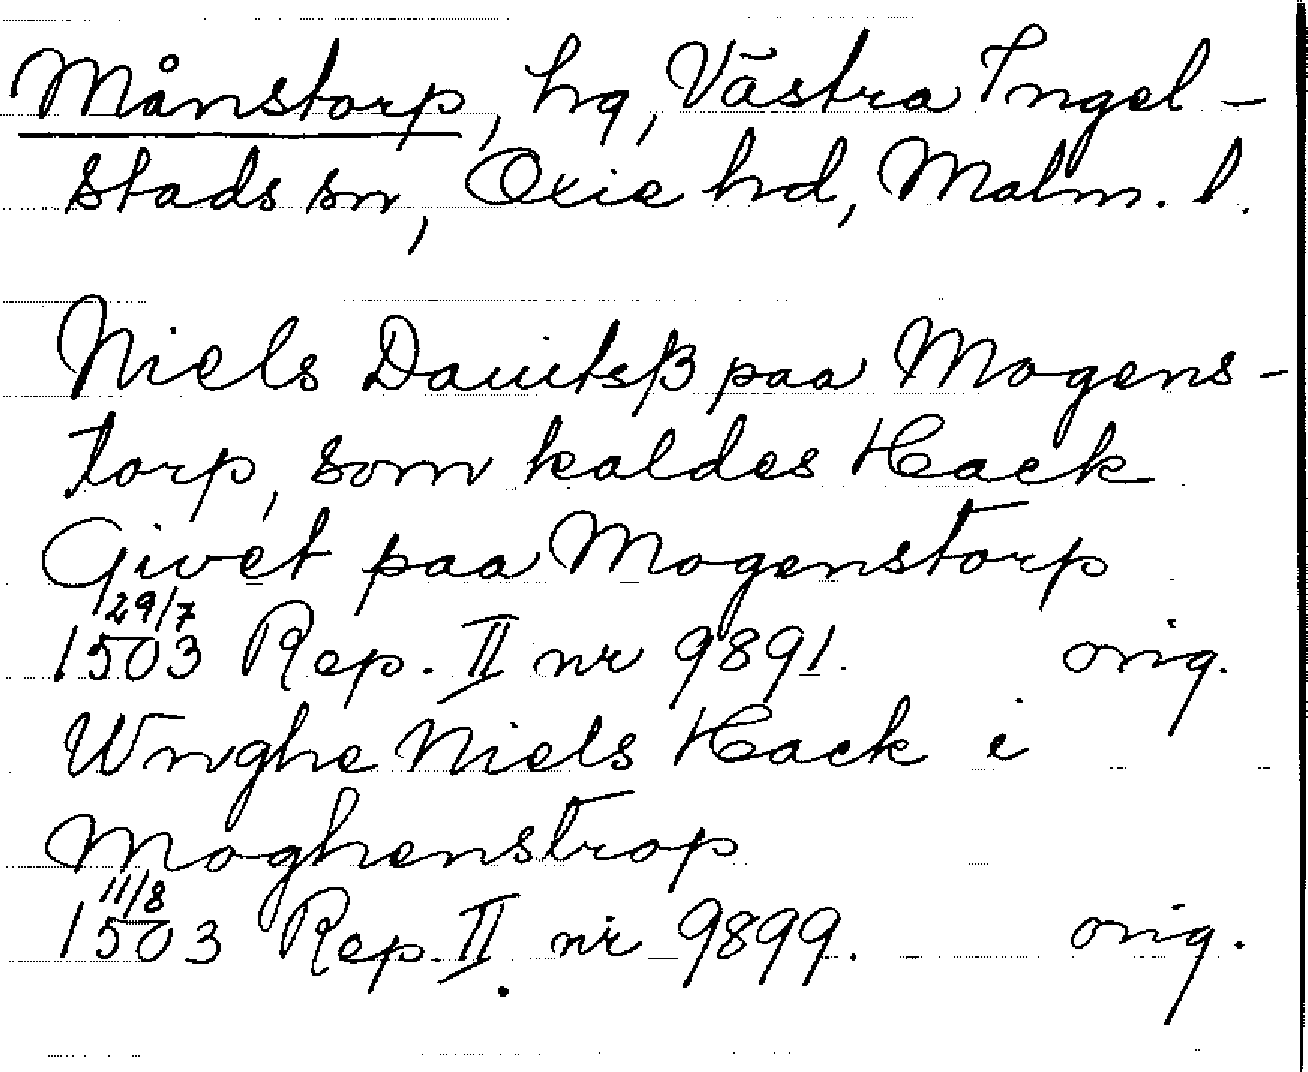 Månstorp, hg, Västra Ingel-
stads sn, Oxie hd, Malm. l.
Niels Dauitsß paa Mogens-
torp, som kaldes Hack
Givet paa Mogenstorp
29/7
1503 Rep. II nr 9891. orig.
Wnghe Niels Hack i
Moghenstrop
11/8
1503 Rep. II nr 9899. orig.